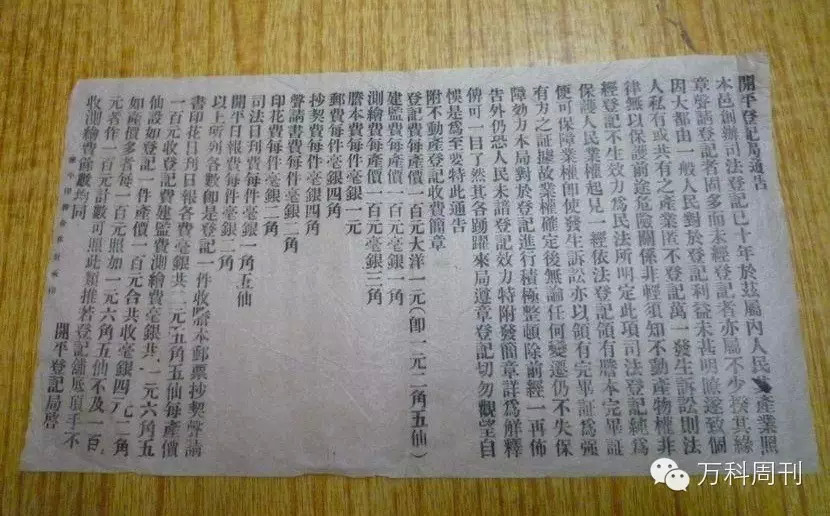 開平登記局通告
本邑創辦司法登記已十年於茲屬內人民產業照
章聲請登記者固多而未經登記者亦屬不少揆其緣
因大都由一般人民對於登記利益未甚明瞭遂致個
人私有或共有之產業匿不登記萬一發生訴訟則法
律無以保護前途危險關係非輕須知不動產物權非
經登記不生效力為民法所明定此項司法登記純為
保護人民業權起見一經依法登記領有謄本完畢証
便可保障業權即使發生訴訟亦以領有完畢証為强
有力之証據故業權確定後無論任何變遷仍不失保
障効力本局對於登記進行積極整頓除前經一再佈
告外仍恐人民未諳登記效力特附發簡章詳為解釋
俾可一目了然其各踴躍來局遵章登記切勿觀望自
悞是為至要特此通告
附不動產登記收費簡章
登記費每產價一百元大洋一元(即一元二角五仙)
建監費每產價一百元毫銀一角
測繪費每產價一百元毫銀三角
謄本費每件毫銀一元
郵費每件毫銀四角
抄契費每件毫銀四角
聲請書費每件毫銀二角
印花費每件毫銀二角
司法日刊費每件毫銀一角五仙
開平日報費每件毫銀二角
以上所列各數即是登記一件收謄本郵票抄契聲請
書印花日刊日報各費毫銀共二元五角五仙每產價
一百元收登記費建監費測繪費毫銀共一元六角五
仙設如登記一件產價一百元合共收毫銀四元二角
如產價多者每一百元照加一元六角五仙不及一百
元者作一百元計數可照此類推若登記舖底頂手不
收測繪費餘數均同
開平登記局啓
万科周刊